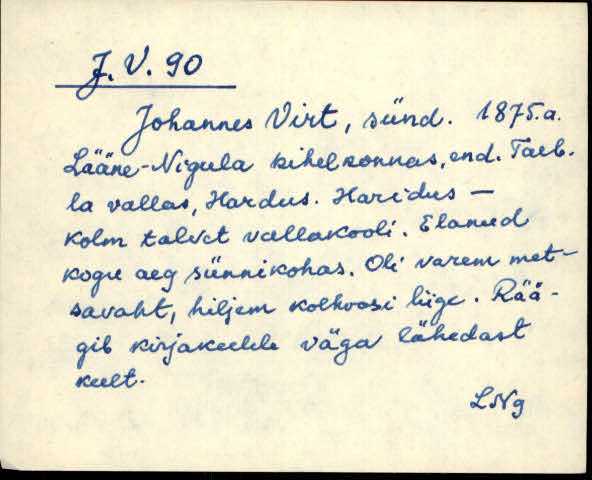 J. V. 90
Johannes Virt, sünd. 1875.a.
Lääne-Nigula kihelkonnas, end. Taeb-
la vallas, Hardus. Haridus —
kolm talvet vallakooli. Elanud
kogu aeg sünnikohas. Oli varem met-
savaht, hiljem kolhoosi liige. Rää-
gib kirjakeelele väga lähedast
keelt.
LNg